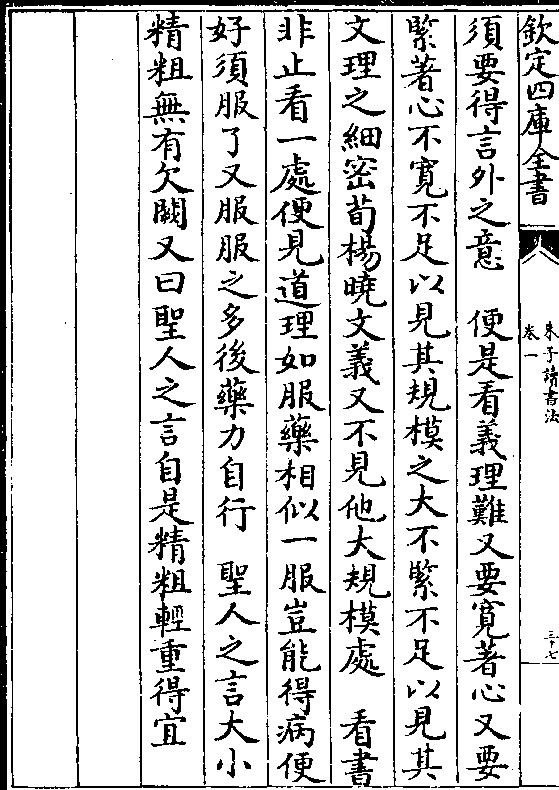 欽定四庫全書
朱子讀書法
卷一
三十七
須要得言外之意　便是看義理難又要寛著心又要
緊著心不寛不足以見其規模之大不緊不足以見其
文理之細密荀楊曉文義又不見他大規模處　看書
非止看一處便見道理如服藥相似一服豈能得病便
好須服了又服服之多後藥力自行　聖人之言大小
精粗無有欠闕又曰聖人之言自是精粗輕重得宜